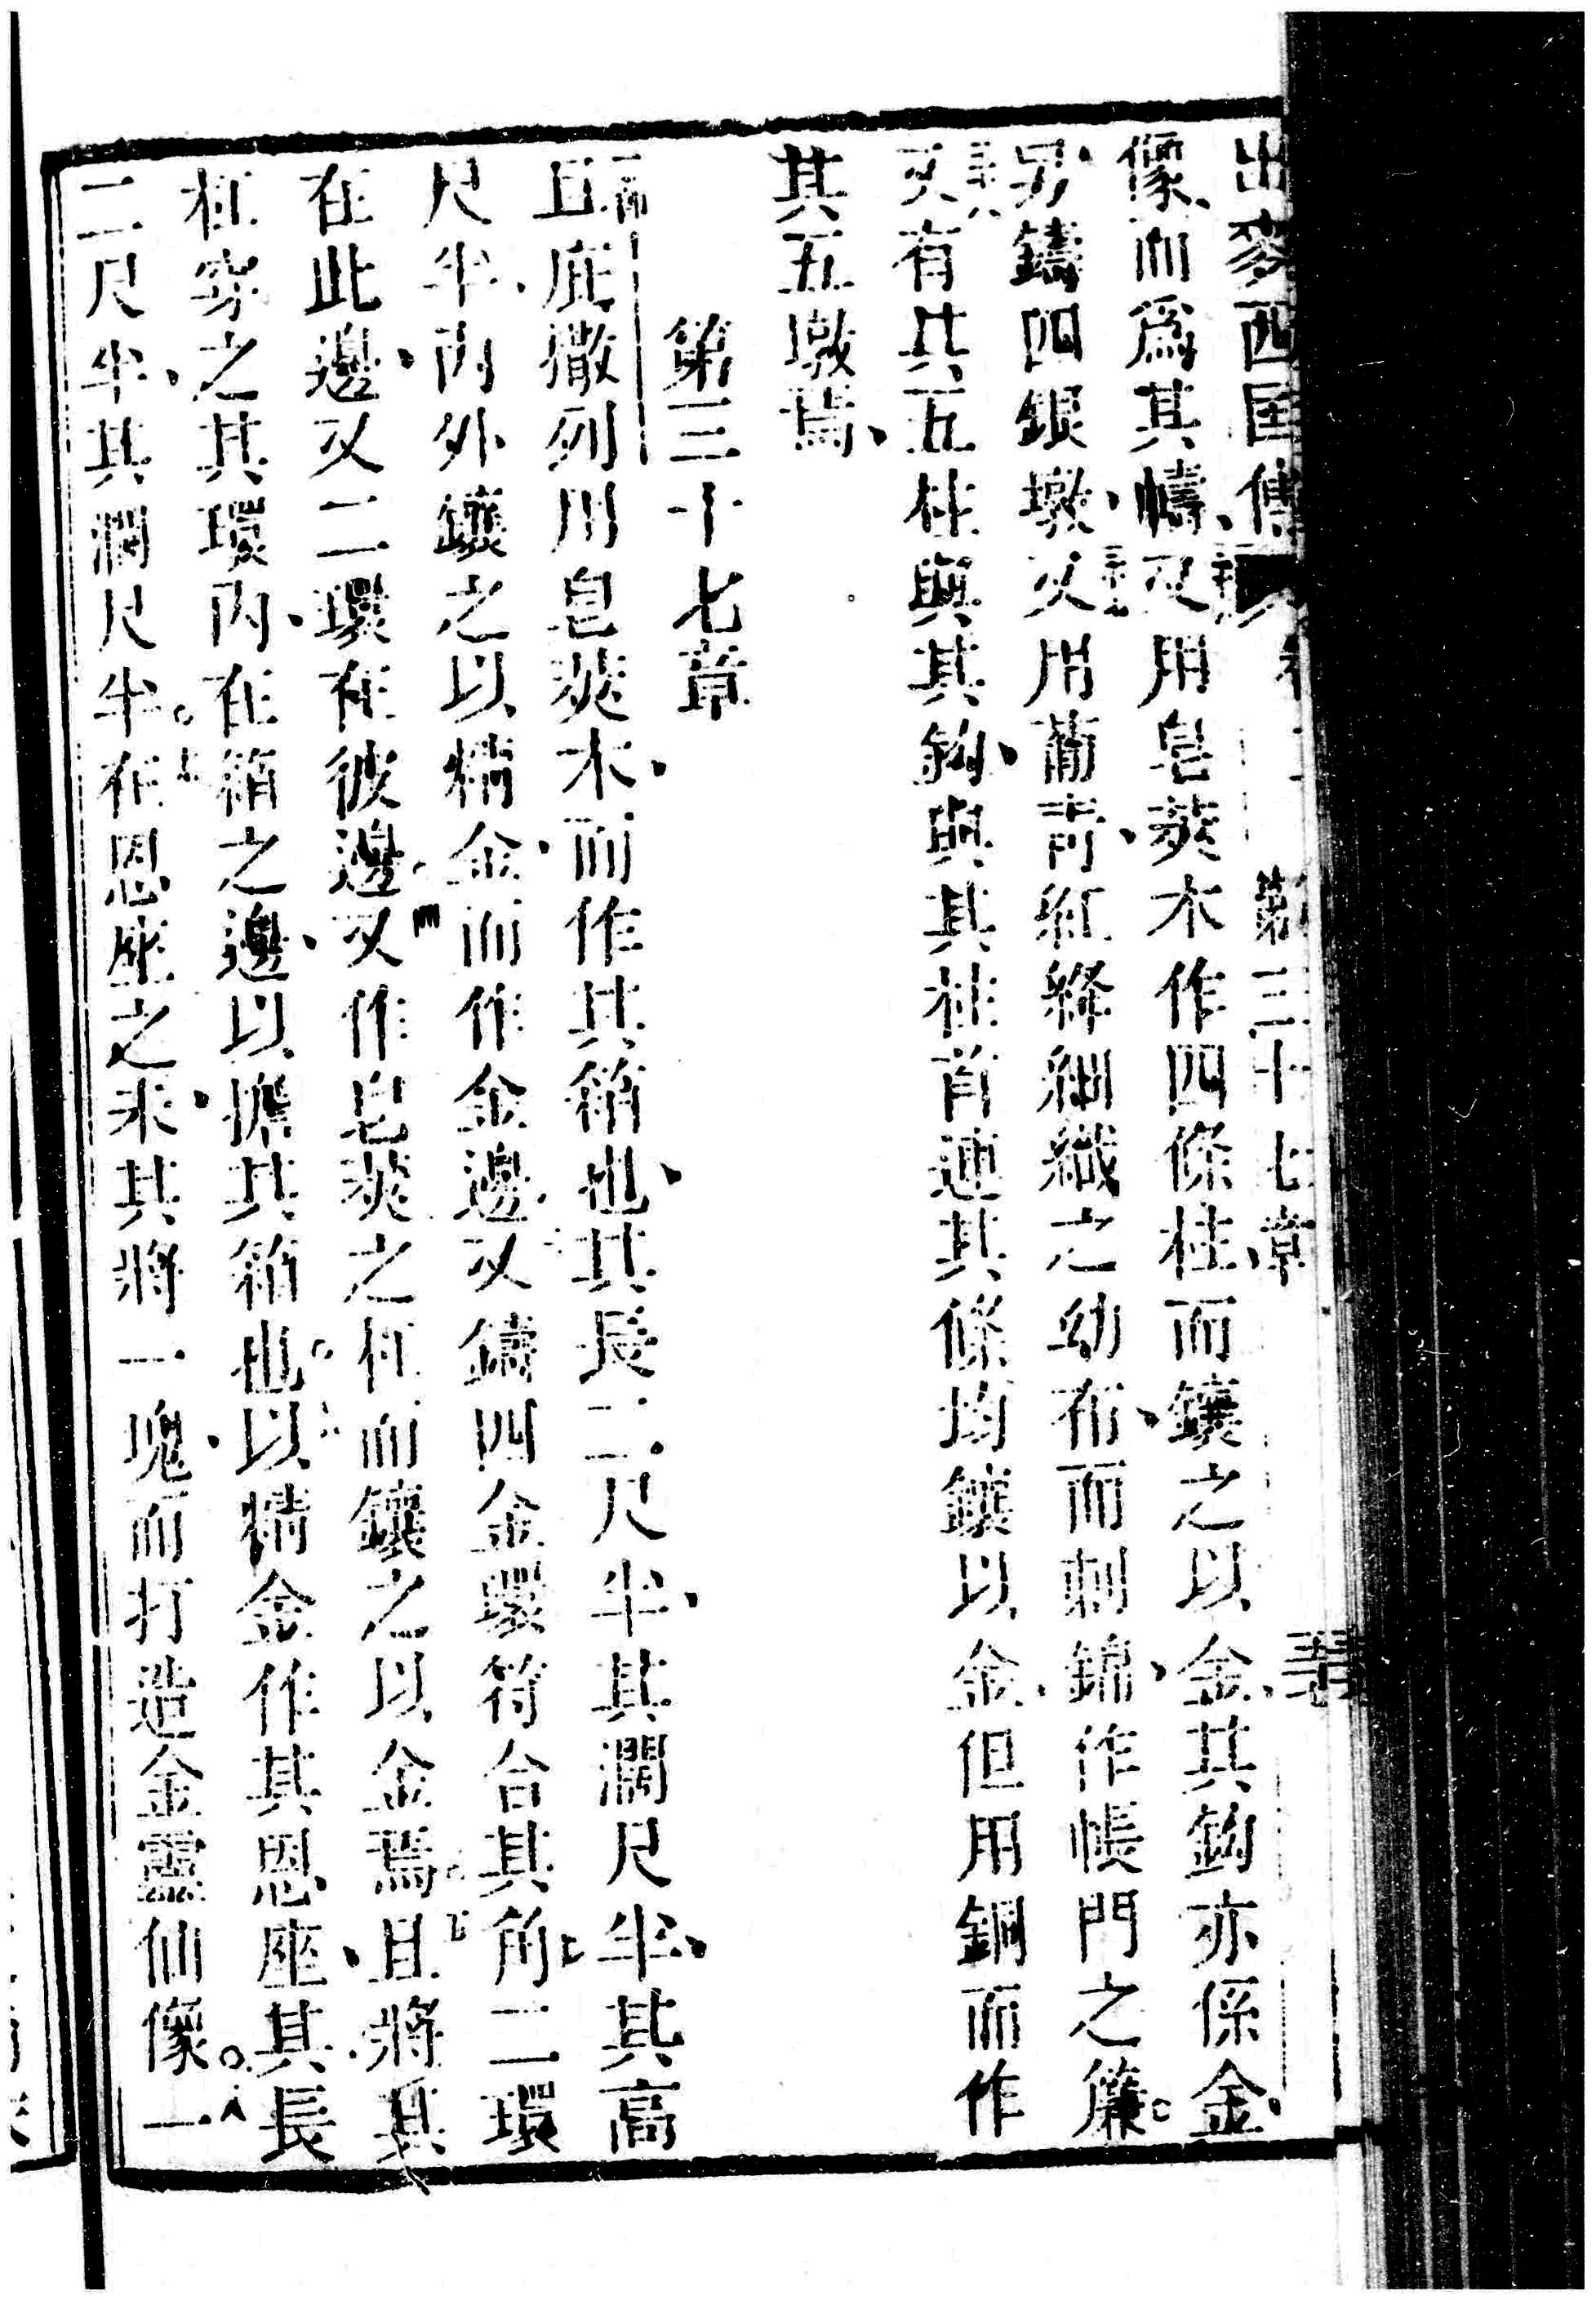 出麥西國傳 第三十七章
像、而爲其幬、三十六又用皂莢木作四條柱、而鑲之以金、其鈎亦係金、
另鑄四銀墩、三十七又用葡青、紅絳細織之幼布、而刺錦、作帳門之簾。
三十八又有其五柱與其鈎、與其柱首連其條均鑲以金、但用銅而作
其五墩焉、
第三十七章
一而且庇撒列用皂莢木、而作其箱也、其長二尺半、其濶尺半、其高
尺半、二內外鑲之以精金、而作金邊、三又鑄四金環符合其角、二環
在此邊、又二環在彼邊。四又作皂莢之杠而鑲之以金焉。五且將其
杠穿之其環內、在箱之邊、以擔其箱也。六以精金作其恩座、其長
二尺半、其濶尺半。七在恩座之末、其將一塊、而打造金靈仙像。八一